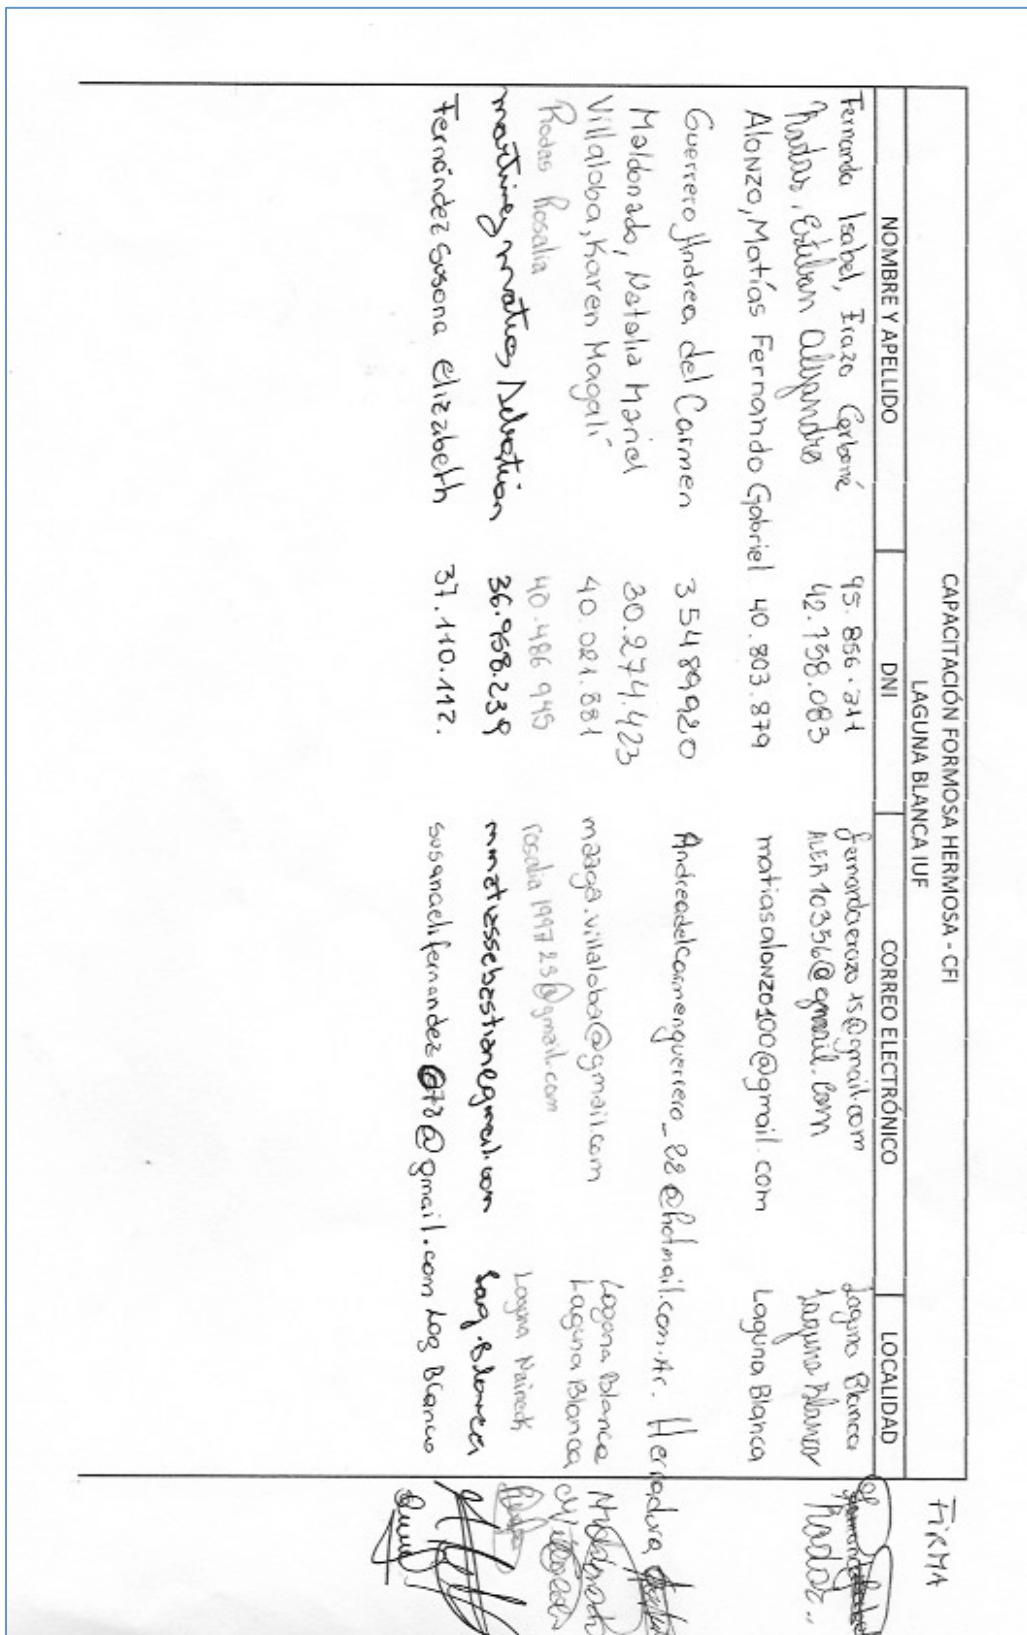 CAPACITACIÓN FORMOSA HERMOSA - CFI
LAGUNA BLANCA IUF
FIRMA
NOMBRE Y APELLIDO DNI CORREO ELECTRÓNICO LOCALIDAD
Fernanda Isabel, Erazo 95.856.211 fernandaerazo15@gmail.com Laguna Blanca
Esteban Alejandro 42.758.083 ALER10356@gmail.com Laguna Blanca
Alonzo, Matías Fernando Gabriel 40.803.879 matiasalonzo100@gmail.com Laguna Blanca
Guerrero Andrea del Carmen 35489920 Andreadelcarmenguerrero_22@hotmail.com.Ar. Herradura
Maldonado, Natalia Mariel 30.274.423 Laguna Blanca
Villaloba, Karen Magalí 40.021.881 maaga.villaloba@gmail.com Laguna Blanca
Rodas Rosalia 40.486 945 rosalia199723@gmail.com Laguna Naineck
Martinez Matias Sebastian 36.958.239 mmatiassebastian@gmail.com Lag. Blanca
Fernández Susana Elizabeth 37.110.112. Lag Blanca